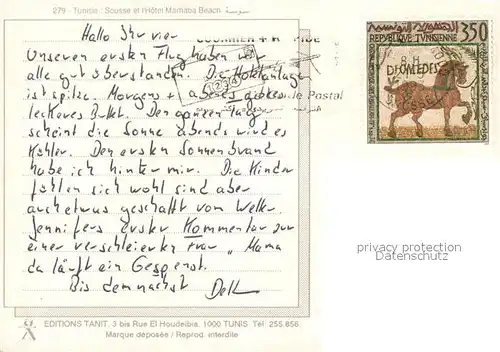 279 - Tunisie : Sousse et l'Hôtel Marhaba Beach - سوسة
Hallo Ihr vier
Unseren ersten Flug haben wir
alle gut überstanden. Die Hotelanlage
ist spitze. Morgens + abends gibt es
leckeres Bufet. Den ganzen Tag
scheint die Sonne abends wird es
kühler. Den ersten Sonnenbrand
habe ich hinter mir. Die Kinder
fühlen sich wohl sind aber
auch etwas geschafft vom Wetter.
Jennifers erster Kommentar zu
einer verschleierten Frau „Mama
da läuft ein Gespenst.
Bis demnächst
REPVBLIQVE TVNISIENNE 350
DIOMEDES
le Postal
privacy protection
Datenschutz
EDITIONS TANIT, 3 bis Rue El Houdeibia, 1000 TUNIS Tél: 255.856
Marque déposée / Reprod. interdite